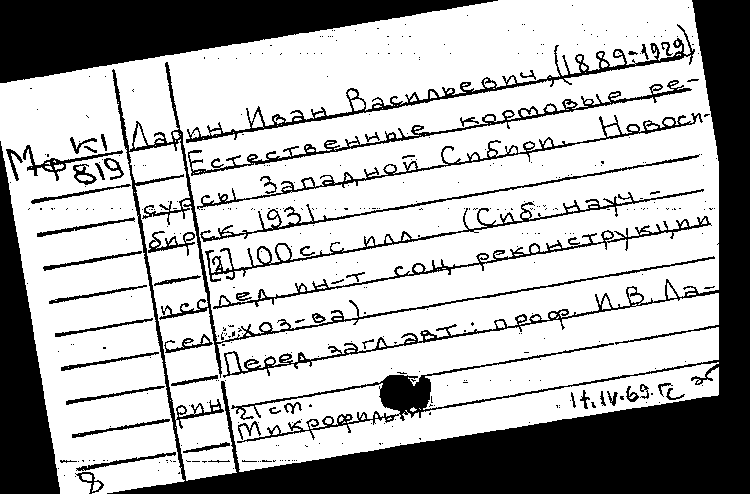 Мф К1
819
Ларин, Иван Васильевич, (1889-1929)
Естественные кормовые ре-
сурсы Западной Сибири. Новоси-
бирск, 1931.
[2], 100 с. с илл. (Сиб. науч.-
исслед. ин-т соц. реконструкции
сел. хоз-ва).
Перед загл. авт.: проф. И.В. Ла-
рин
21 ст.
Микрофильм.
17.IV.69.
8